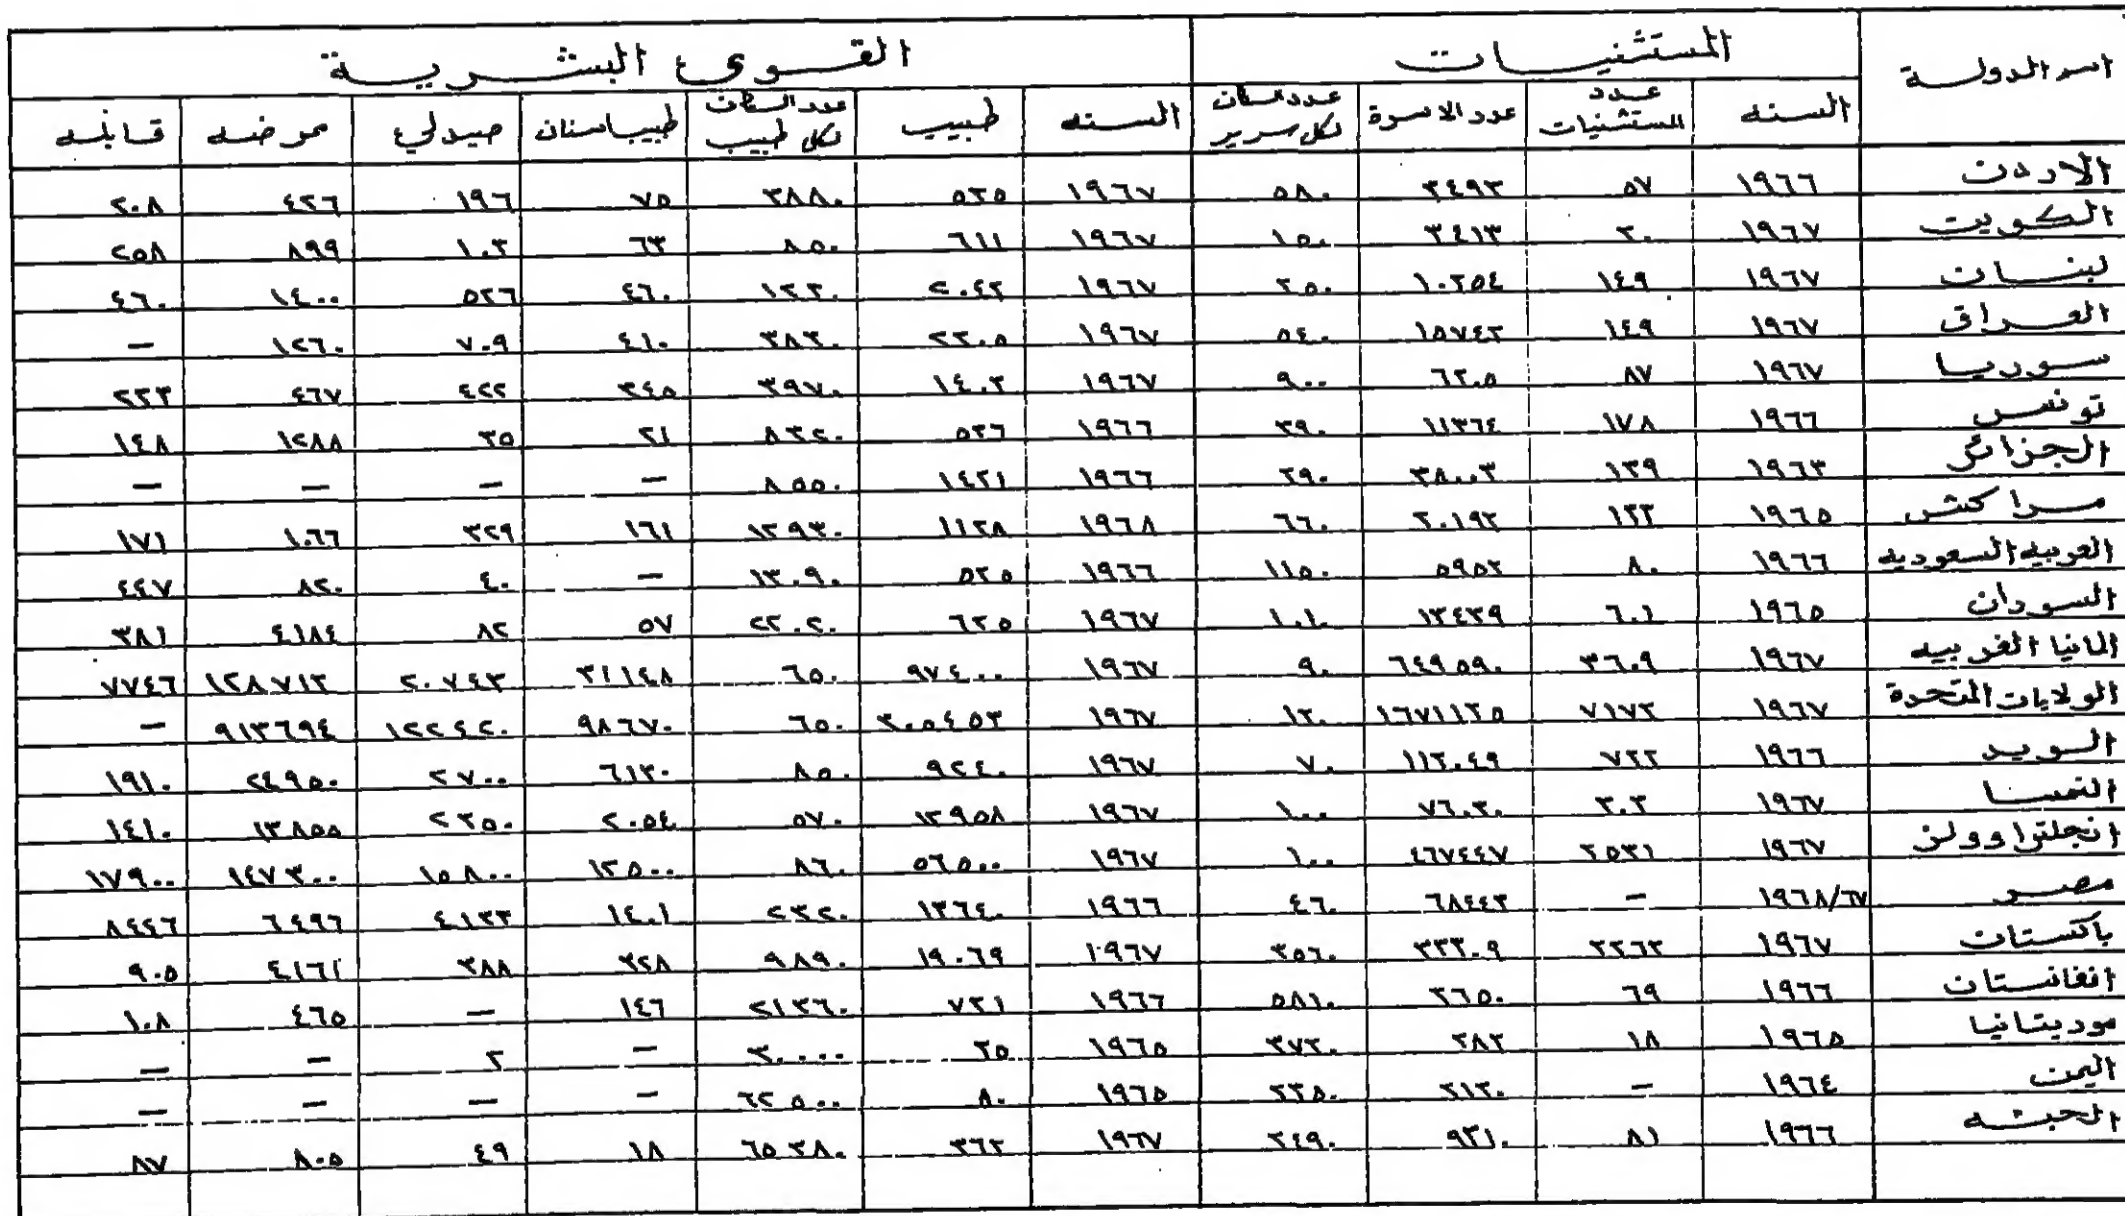 اسم الدولة | المستشفيات | القوى البشرية
السنه | عدد المستشفيات | عدد الاسرة | عدد السكان لكل سرير | السنه | طبيب | عدد السكان لكل طبيب | طبيب اسنان | صيدلي | ممرضه | قابله
الاردن | ١٩٦٦ | ٥٧ | ٣٤٩٣ | ٥٨٠ | ١٩٦٧ | ٥٣٥ | ٣٨٨٠ | ٧٥ | ١٩٦ | ٤٢٦ | ٢٠٨
الكويت | ١٩٦٧ | ٢٠ | ٣٤١٣ | ١٥٠ | ١٩٦٧ | ٦١١ | ٨٥٠ | ٦٣ | ١٠٣ | ٨٩٩ | ٢٥٨
لبنان | ١٩٦٧ | ١٤٩ | ١٠٢٥٤ | ٢٥٠ | ١٩٦٧ | ٢٠٤٢ | ١٢٣٠ | ٤٦٠ | ٥٢٦ | ١٤٠٠ | ٤٦٠
العراق | ١٩٦٧ | ١٤٩ | ١٥٧٤٢ | ٥٤٠ | ١٩٦٧ | ٢٢٠٥ | ٣٨٣٠ | ٤١٠ | ٧٠٩ | ١٢٦٠ | —
سوريا | ١٩٦٧ | ٨٧ | ٦٢٠٥ | ٩٠٠ | ١٩٦٧ | ١٤٠٣ | ٣٩٧٠ | ٣٤٥ | ٤٢٢ | ٤٦٧ | ٢٢٣
تونس | ١٩٦٦ | ١٧٨ | ١١٣٦٤ | ٣٩٠ | ١٩٦٦ | ٥٣٦ | ٨٣٢٠ | ٢١ | ٣٥ | ١٢٨٨ | ١٤٨
الجزائر | ١٩٦٣ | ١٣٩ | ٣٨٠٠٣ | ٢٩٠ | ١٩٦٦ | ١٤٢١ | ٨٥٥٠ | — | — | — | —
مراكش | ١٩٦٥ | ١٢٢ | ٢٠١٩٢ | ٦٦٠ | ١٩٦٨ | ١١٢٨ | ١٢٩٣٠ | ١٦١ | ٣٢٩ | ١٠٦٦ | ١٧١
العربيه السعوديه | ١٩٦٦ | ٨٠ | ٥٩٥٢ | ١١٥٠ | ١٩٦٦ | ٥٢٥ | ١٣٠٩٠ | — | ٤٠ | ٨٢٠ | ٤٤٧
السودان | ١٩٦٥ | ٦٠١ | ١٣٤٣٩ | ١٠١٠ | ١٩٦٧ | ٦٢٥ | ٢٣٠٢٠ | ٥٧ | ٨٢ | ٤١٨٤ | ٣٨١
المانيا الغربيه | ١٩٦٧ | ٣٦٠٩ | ٦٤٩٥٩٠ | ٩٠ | ١٩٦٧ | ٩٧٤٠٠ | ٦٥٠ | ٣١١٤٨ | ٢٠٧٤٣ | ١٢٨٧١٢ | ٧٧٤٦
الولايات المتحدة | ١٩٦٧ | ٧١٧٢ | ١٦٧١١٢٥ | ١٢٠ | ١٩٦٧ | ٣٠٥٤٥٣ | ٦٥٠ | ٩٨٦٧٠ | ١٢٢٤٢٠ | ٩١٣٦٩٤ | —
السويد | ١٩٦٦ | ٧٢٢ | ١١٢٠٤٩ | ٧٠ | ١٩٦٧ | ٩٢٤٠ | ٨٥٠ | ٦١٣٠ | ٢٧٠٠ | ٢٤٩٥٠ | ١٩١٠
النمسا | ١٩٦٧ | ٣٠٣ | ٧٦٠٣٠ | ١٠٠ | ١٩٦٧ | ١٢٩٥٨ | ٥٧٠ | ٢٠٥٤ | ٢٢٥٠ | ١٣٨٥٥ | ١٤١٠
انجلترا وولز | ١٩٦٧ | ٢٥٣١ | ٤٦٧٤٤٧ | ١٠٠ | ١٩٦٧ | ٥٦٥٠٠ | ٨٦٠ | ١٢٥٠٠ | ١٥٨٠٠ | ١٤٧٣٠٠ | ١٧٩٠٠
مصر | ١٩٦٨/٦٧ | — | ٦٨٤٤٢ | ٤٦٠ | ١٩٦٦ | ١٣٦٤٠ | ٢٣٢٠ | ١٤٠١ | ٤١٣٣ | ٦٤٩٦ | ٨٤٤٦
باكستان | ١٩٦٧ | ٢٢٦٣ | ٣٣٢٠٩ | ٣٥٦٠ | ١٩٦٧ | ١٩٠٦٩ | ٩٨٩٠ | ٣٢٨ | ٣٨٨ | ٤١٦١ | ٩٠٥
افغانستان | ١٩٦٦ | ٦٩ | ٢٦٥٠ | ٥٨١٠ | ١٩٦٦ | ٧٢١ | ٢١٣٦٠ | ١٤٦ | — | ٤٦٥ | ١٠٨
موريتانيا | ١٩٦٥ | ١٨ | ٢٨٢ | ٣٧٢٠ | ١٩٦٥ | ٣٥ | ٣٠٠٠٠ | — | ٢ | — | —
اليمن | ١٩٦٤ | — | ٢١٢٠ | ٢٣٥٠ | ١٩٦٥ | ٨٠ | ٦٢٥٠٠ | — | — | — | —
الحبشه | ١٩٦٦ | ٨١ | ٩٣١٠ | ٢٤٩٠ | ١٩٦٧ | ٣٦٢ | ٦٥٣٨٠ | ١٨ | ٤٩ | ٨٠٥ | ٨٧